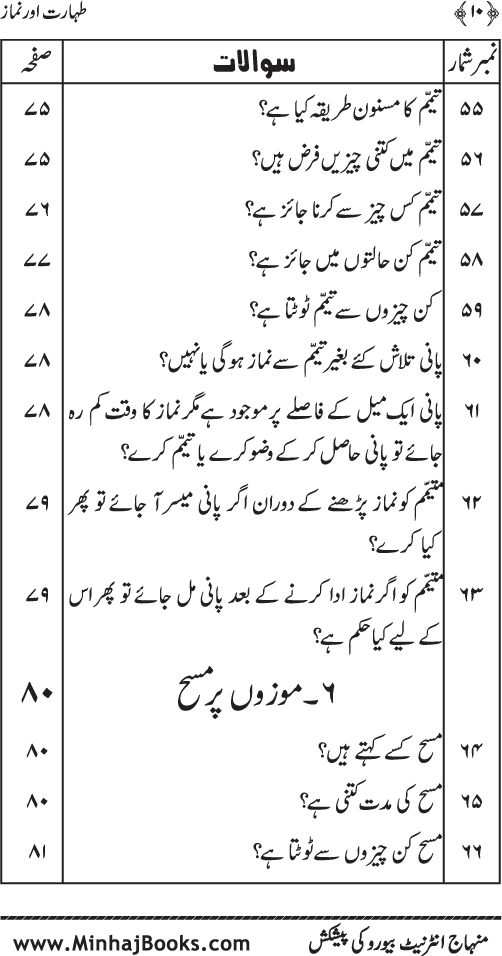 طہارت اور نماز ﴿۱۰﴾
نمبر شمار سوالات صفحہ
۵۵ تیمّم کا مسنون طریقہ کیا ہے؟ ۷۵
۵۶ تیمّم میں کتنی چیزیں فرض ہیں؟ ۷۵
۵۷ تیمّم کس چیز سے کرنا جائز ہے؟ ۷۶
۵۸ تیمّم کن حالتوں میں جائز ہے؟ ۷۷
۵۹ کن چیزوں سے تیمّم ٹوٹتا ہے؟ ۷۸
۶۰ پانی تلاش کئے بغیر تیمّم سے نماز ہوگی یا نہیں؟ ۷۸
۶۱ پانی ایک میل کے فاصلے پر موجود ہے مگر نماز کا وقت کم رہ ۷۸
جائے تو پانی حاصل کر کے وضو کرے یا تیمّم کرے؟
۶۲ متیمّم کو نماز پڑھنے کے دوران اگر پانی میسر آ جائے تو پھر ۷۹
کیا کرے؟
۶۳ متیمّم کو اگر نماز ادا کرنے کے بعد پانی مل جائے تو پھر اس ۷۹
کے لیے کیا حکم ہے؟
۶۔ موزوں پر مسح ۸۰
۶۴ مسح کسے کہتے ہیں؟ ۸۰
۶۵ مسح کی مدت کتنی ہے؟ ۸۰
۶۶ مسح کن چیزوں سے ٹوٹتا ہے؟ ۸۱
منہاج انٹرنیٹ بیورو کی پیشکش www.MinhajBooks.com